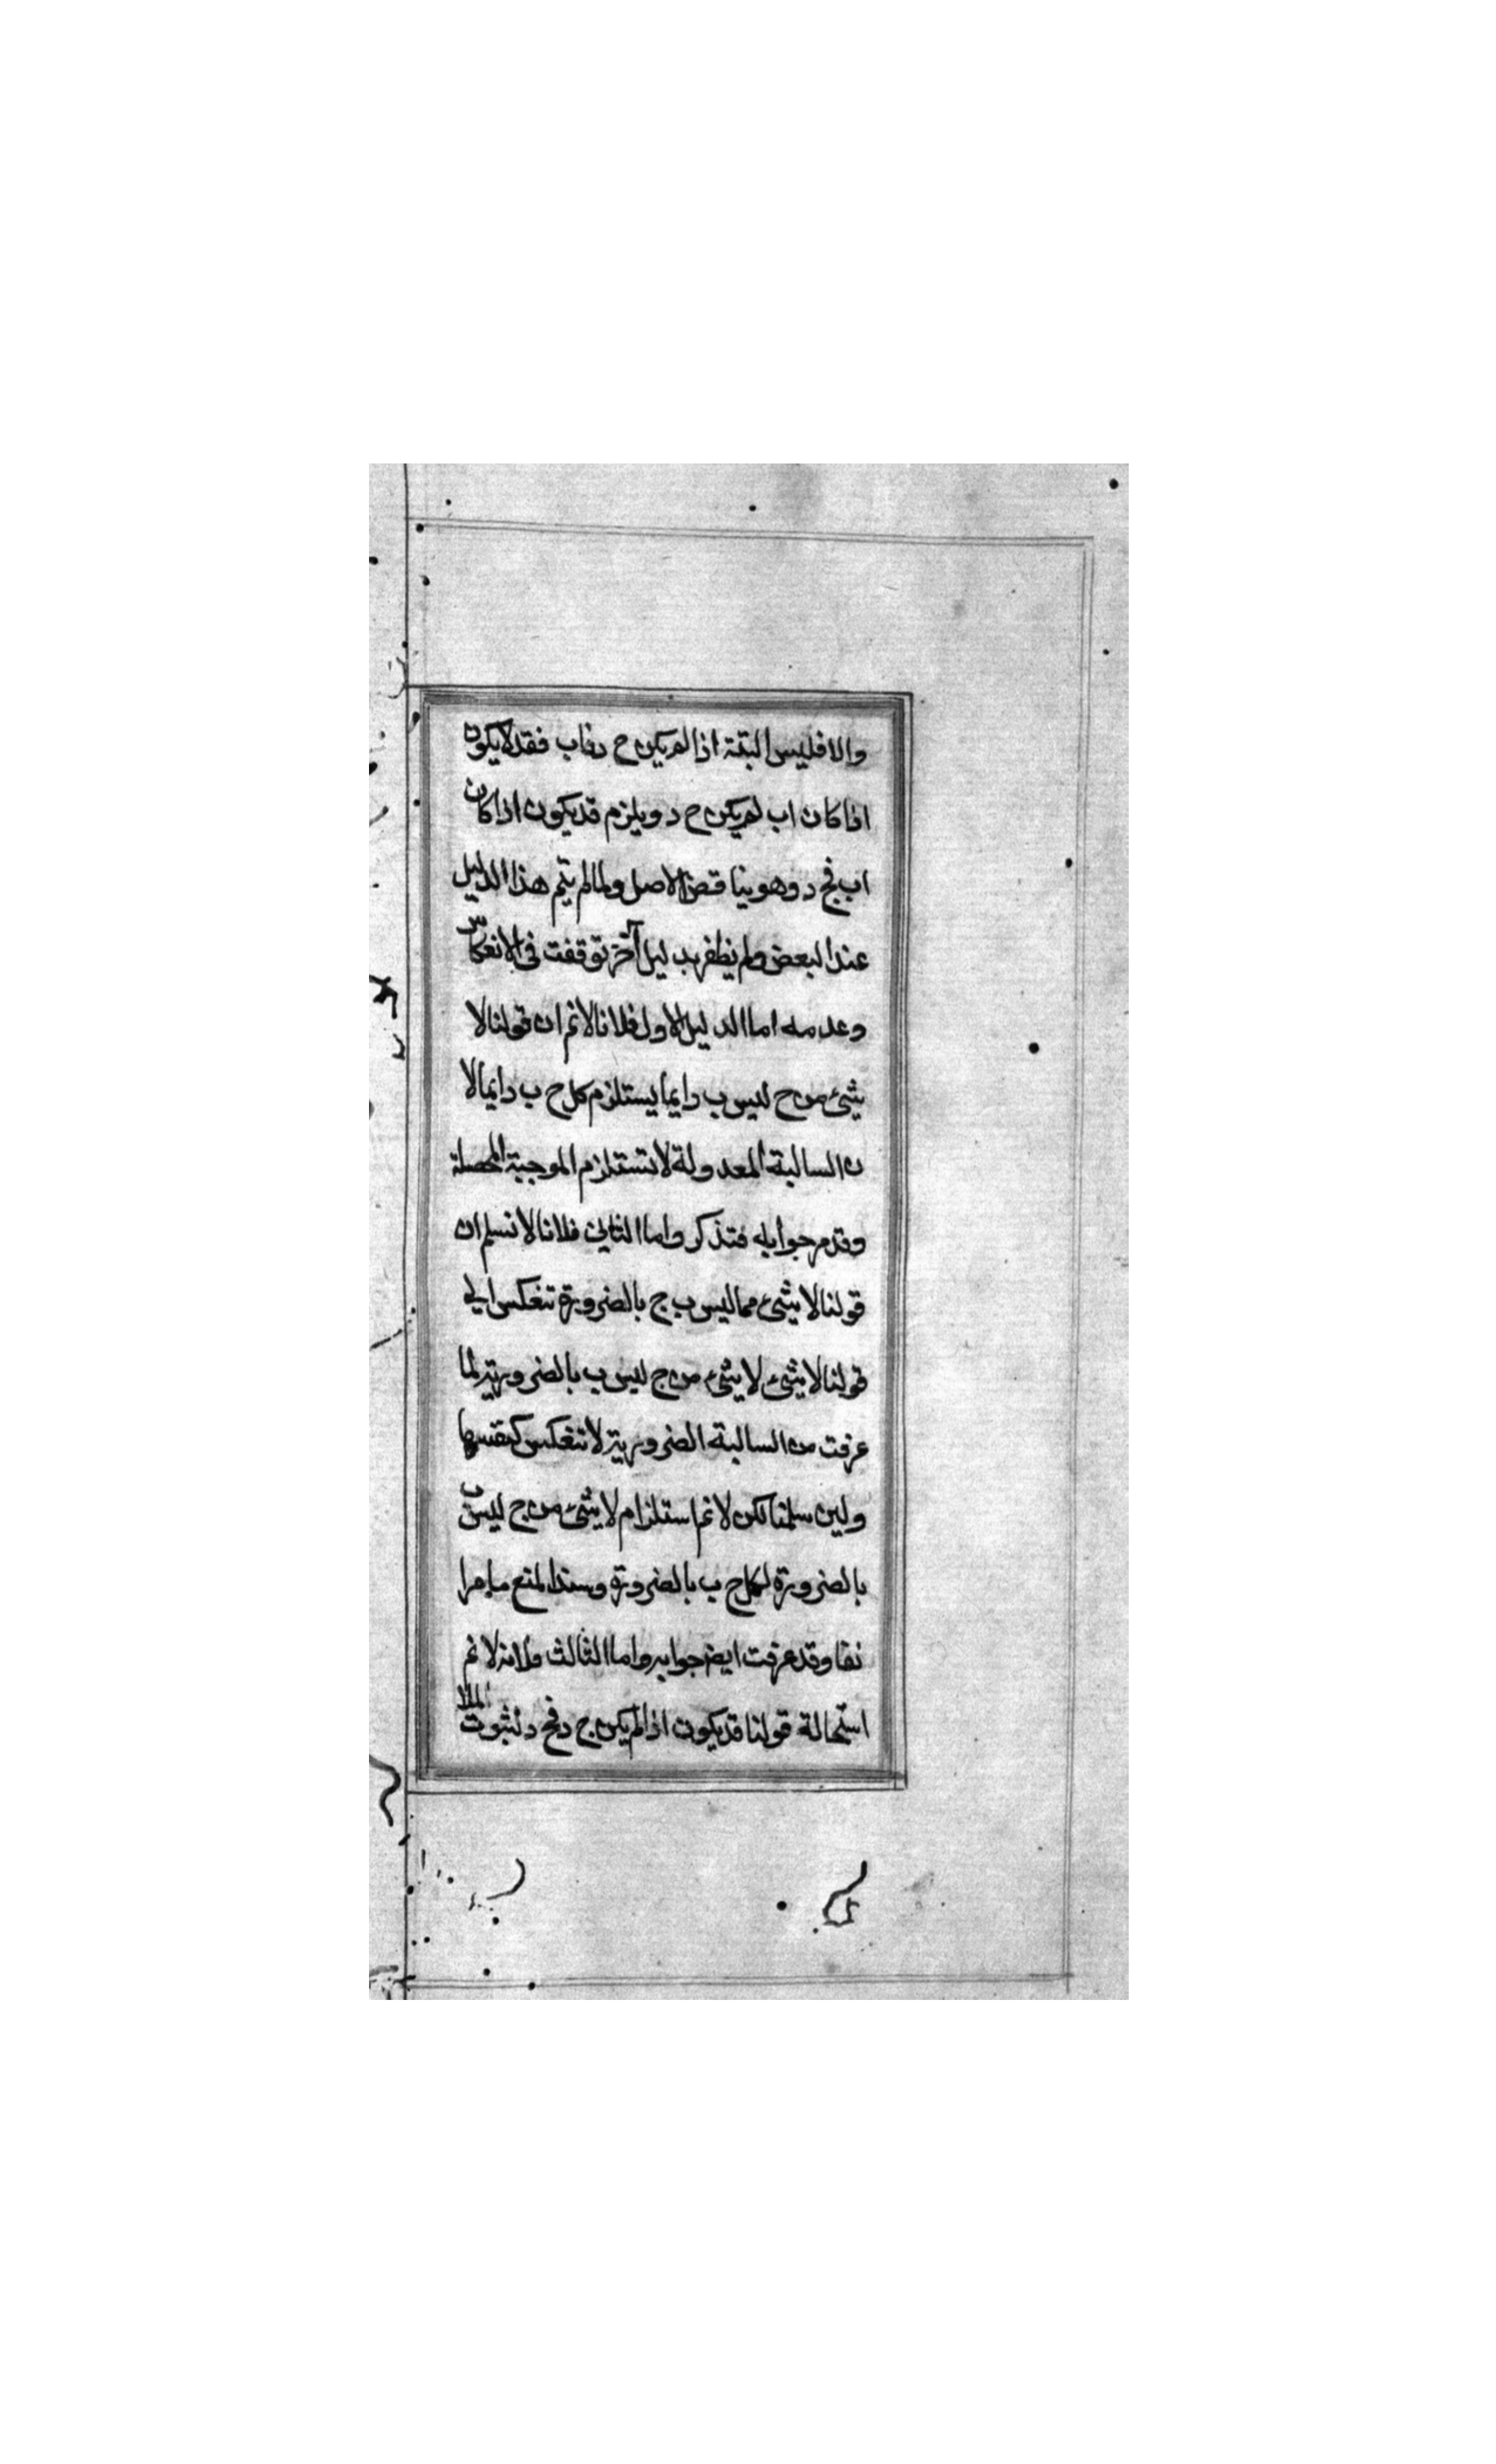 والا فليس البتة اذا لم يكن ح د فاب فقد لا يكون
اذا كان اب لم يكن ح د ويلزم قد يكون اذا كان
اب فج د وهو يناقض الاصل ولما لم يتم هذا الدليل
عند البعض ولم يظفر بدليل آخر توقفت في الانعكاس
وعدمه اما الدليل الاول فلانا لا نم ان قولنا لا
شئ من ح ليس ب دايما يستلزم كل ح ب دايما لا
ن السالبة المعدولة لا تستلزم الموجبة المحصلة
وقد مر جوابه فتذكر واما الثاني فلانا لا نسلم ان
قولنا لا شئ مما ليس ب ج بالضرورة تنعكس الي
قولنا لا شئ لا شئ من ج ليس ب بالضرورية لما
عرفت من السالبة الضرورية لا تنعكس كنفسها
ولين سلمنا لكن لا نم استلزام لا شئ من ج ليس ب
بالضرورة لكل ح ب بالضرورة وسند المنع ما مر ا
نفا وقد عرفت ايض جوابه واما الثالث فلانه لا نم
استحالة قولنا قد يكون اذا لم يكن ج د فج د لثبوت الملا